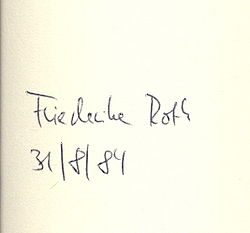 Friederike Roth
31/8/84